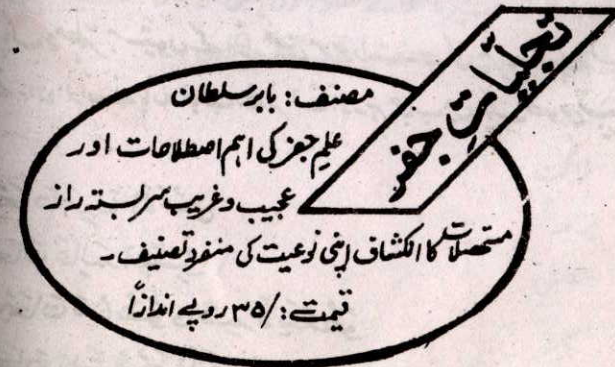 تجلیاتِ جفر
مصنف: بابر سلطان
علمِ جفر کی اہم اصطلاحات اور
عجیب و غریب سربستہ راز
مستحصلات کا انکشاف اپنی نوعیت کی منفرد تصنیف۔
قیمت: /۳۵ روپے اندازاً